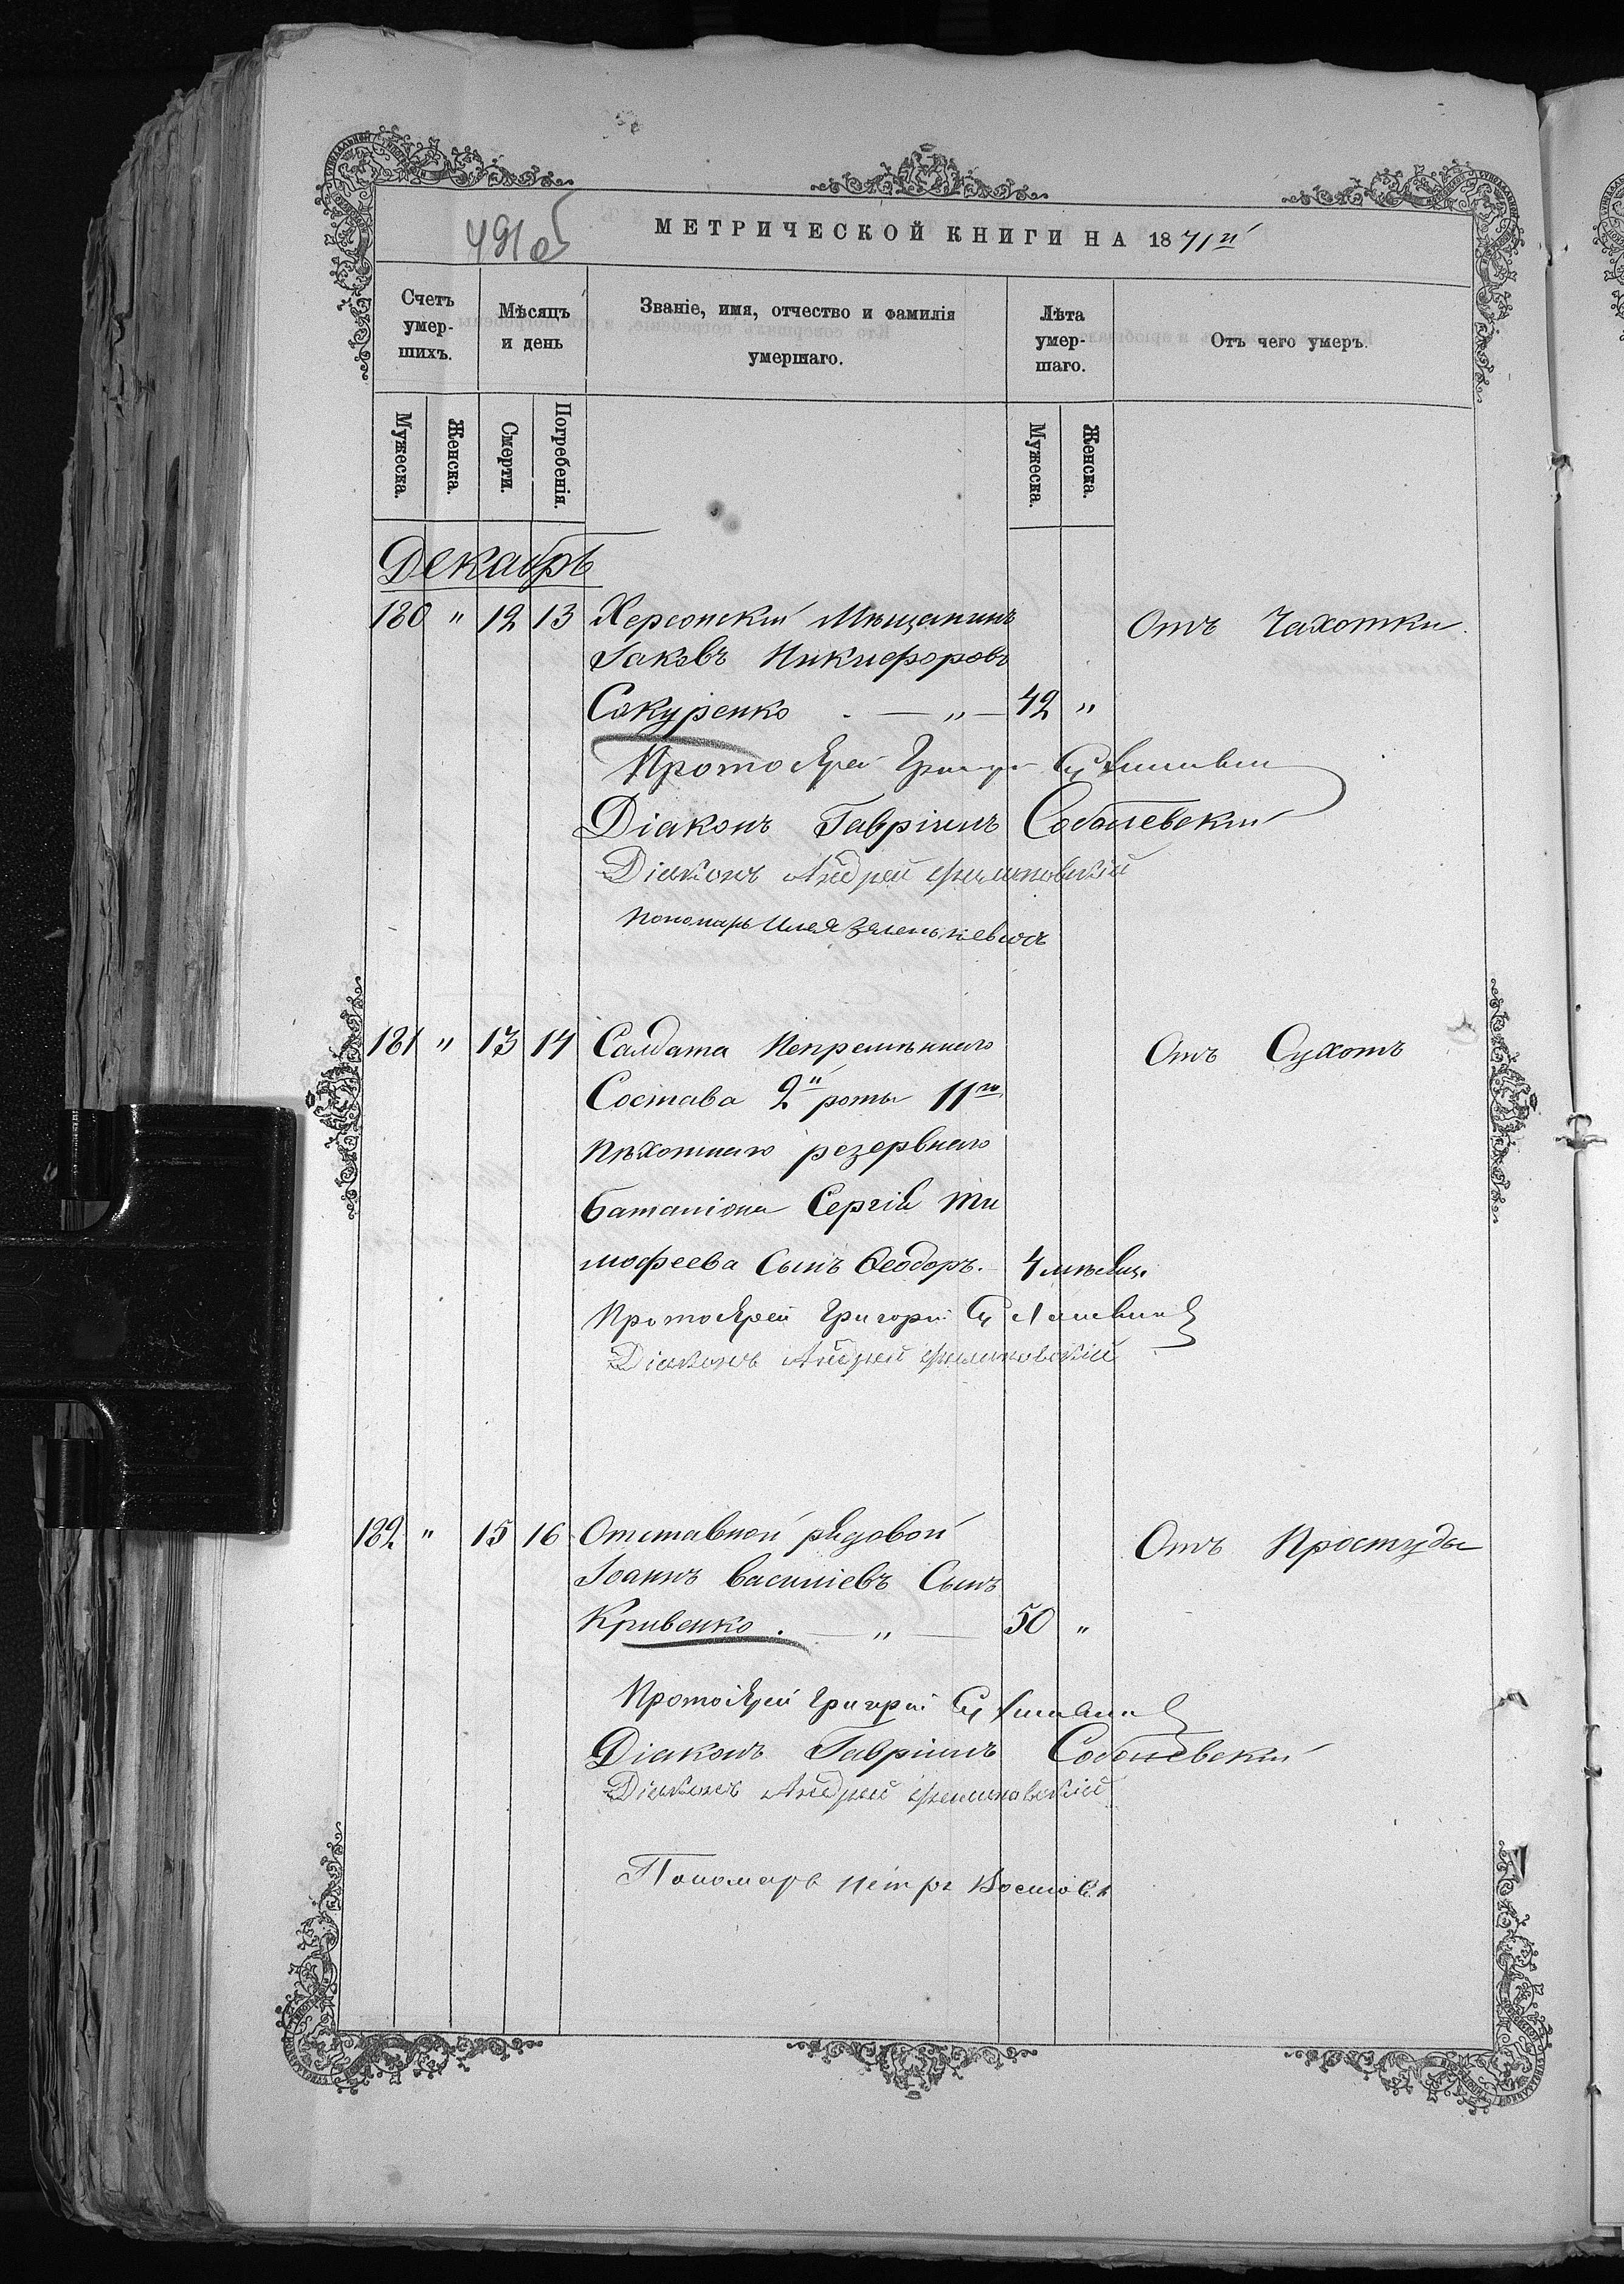 491об
МЕТРИЧЕСКОЙ КНИГИ НА 1871й
Счетъ умер-шихъ.
Мѣсяцъ и день
Званіе, имя, отчество и фамилія умершаго.
Лѣта умер-шаго.
Отъ чего умеръ.
Мужеска.
Женска.
Смерти.
Погребенія.
Мужеска.
Женска.
Декабрь
180 " 12 13 Херсонскій Мѣщанинъ Отъ Чахотки.
Іаковъ Никифоровъ
Сокуренко . — „ — 42 "
Протоіерей
Діаконъ Гавріилъ Соболевскій
Діаконъ Андрей Филиповскій
Пономарь Илія
181 " 13 14 Салдата Непремѣннаго Отъ Сухотъ
Состава 2й роты 11го
Пѣхотнаго резервнаго
баталіона Сергія Ти
мофеева Сынъ Ѳеодоръ. 4 мѣсяц.
Протоіерей Григорій
Діаконъ Андрей Филиповскій
182. " 15 16 Отставной рядовой Отъ Простуды
Іоаннъ Василіевъ Сынъ
Кривенко . — „ — 50 "
Протоіерей Григорій
Діаконъ Гавріилъ Соболевскій
Діаконъ Андрей Филиповскій
Пономарь Петръ